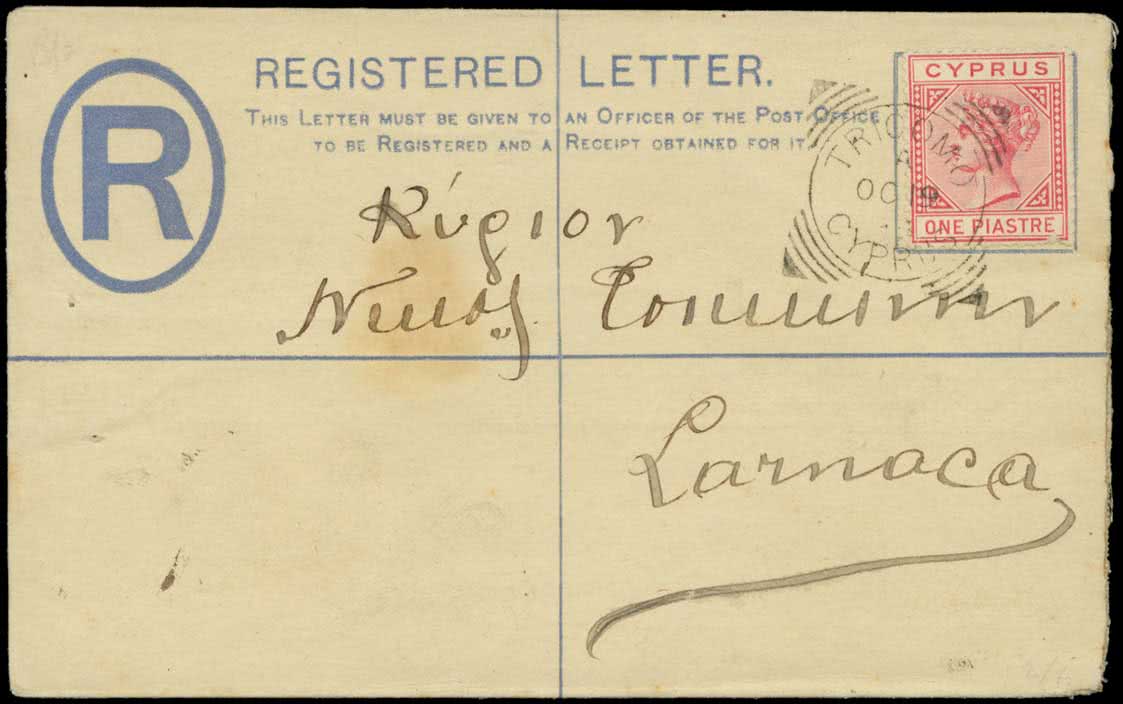 REGISTERED LETTER.
THIS LETTER MUST BE GIVEN TO AN OFFICER OF THE POST OFFICE
TO BE REGISTERED AND A RECEIPT OBTAINED FOR IT.
R
CYPRUS
ONE PIASTRE
TRICOMO
A
OC 19
CYPRUS
Κύριον
Larnaca